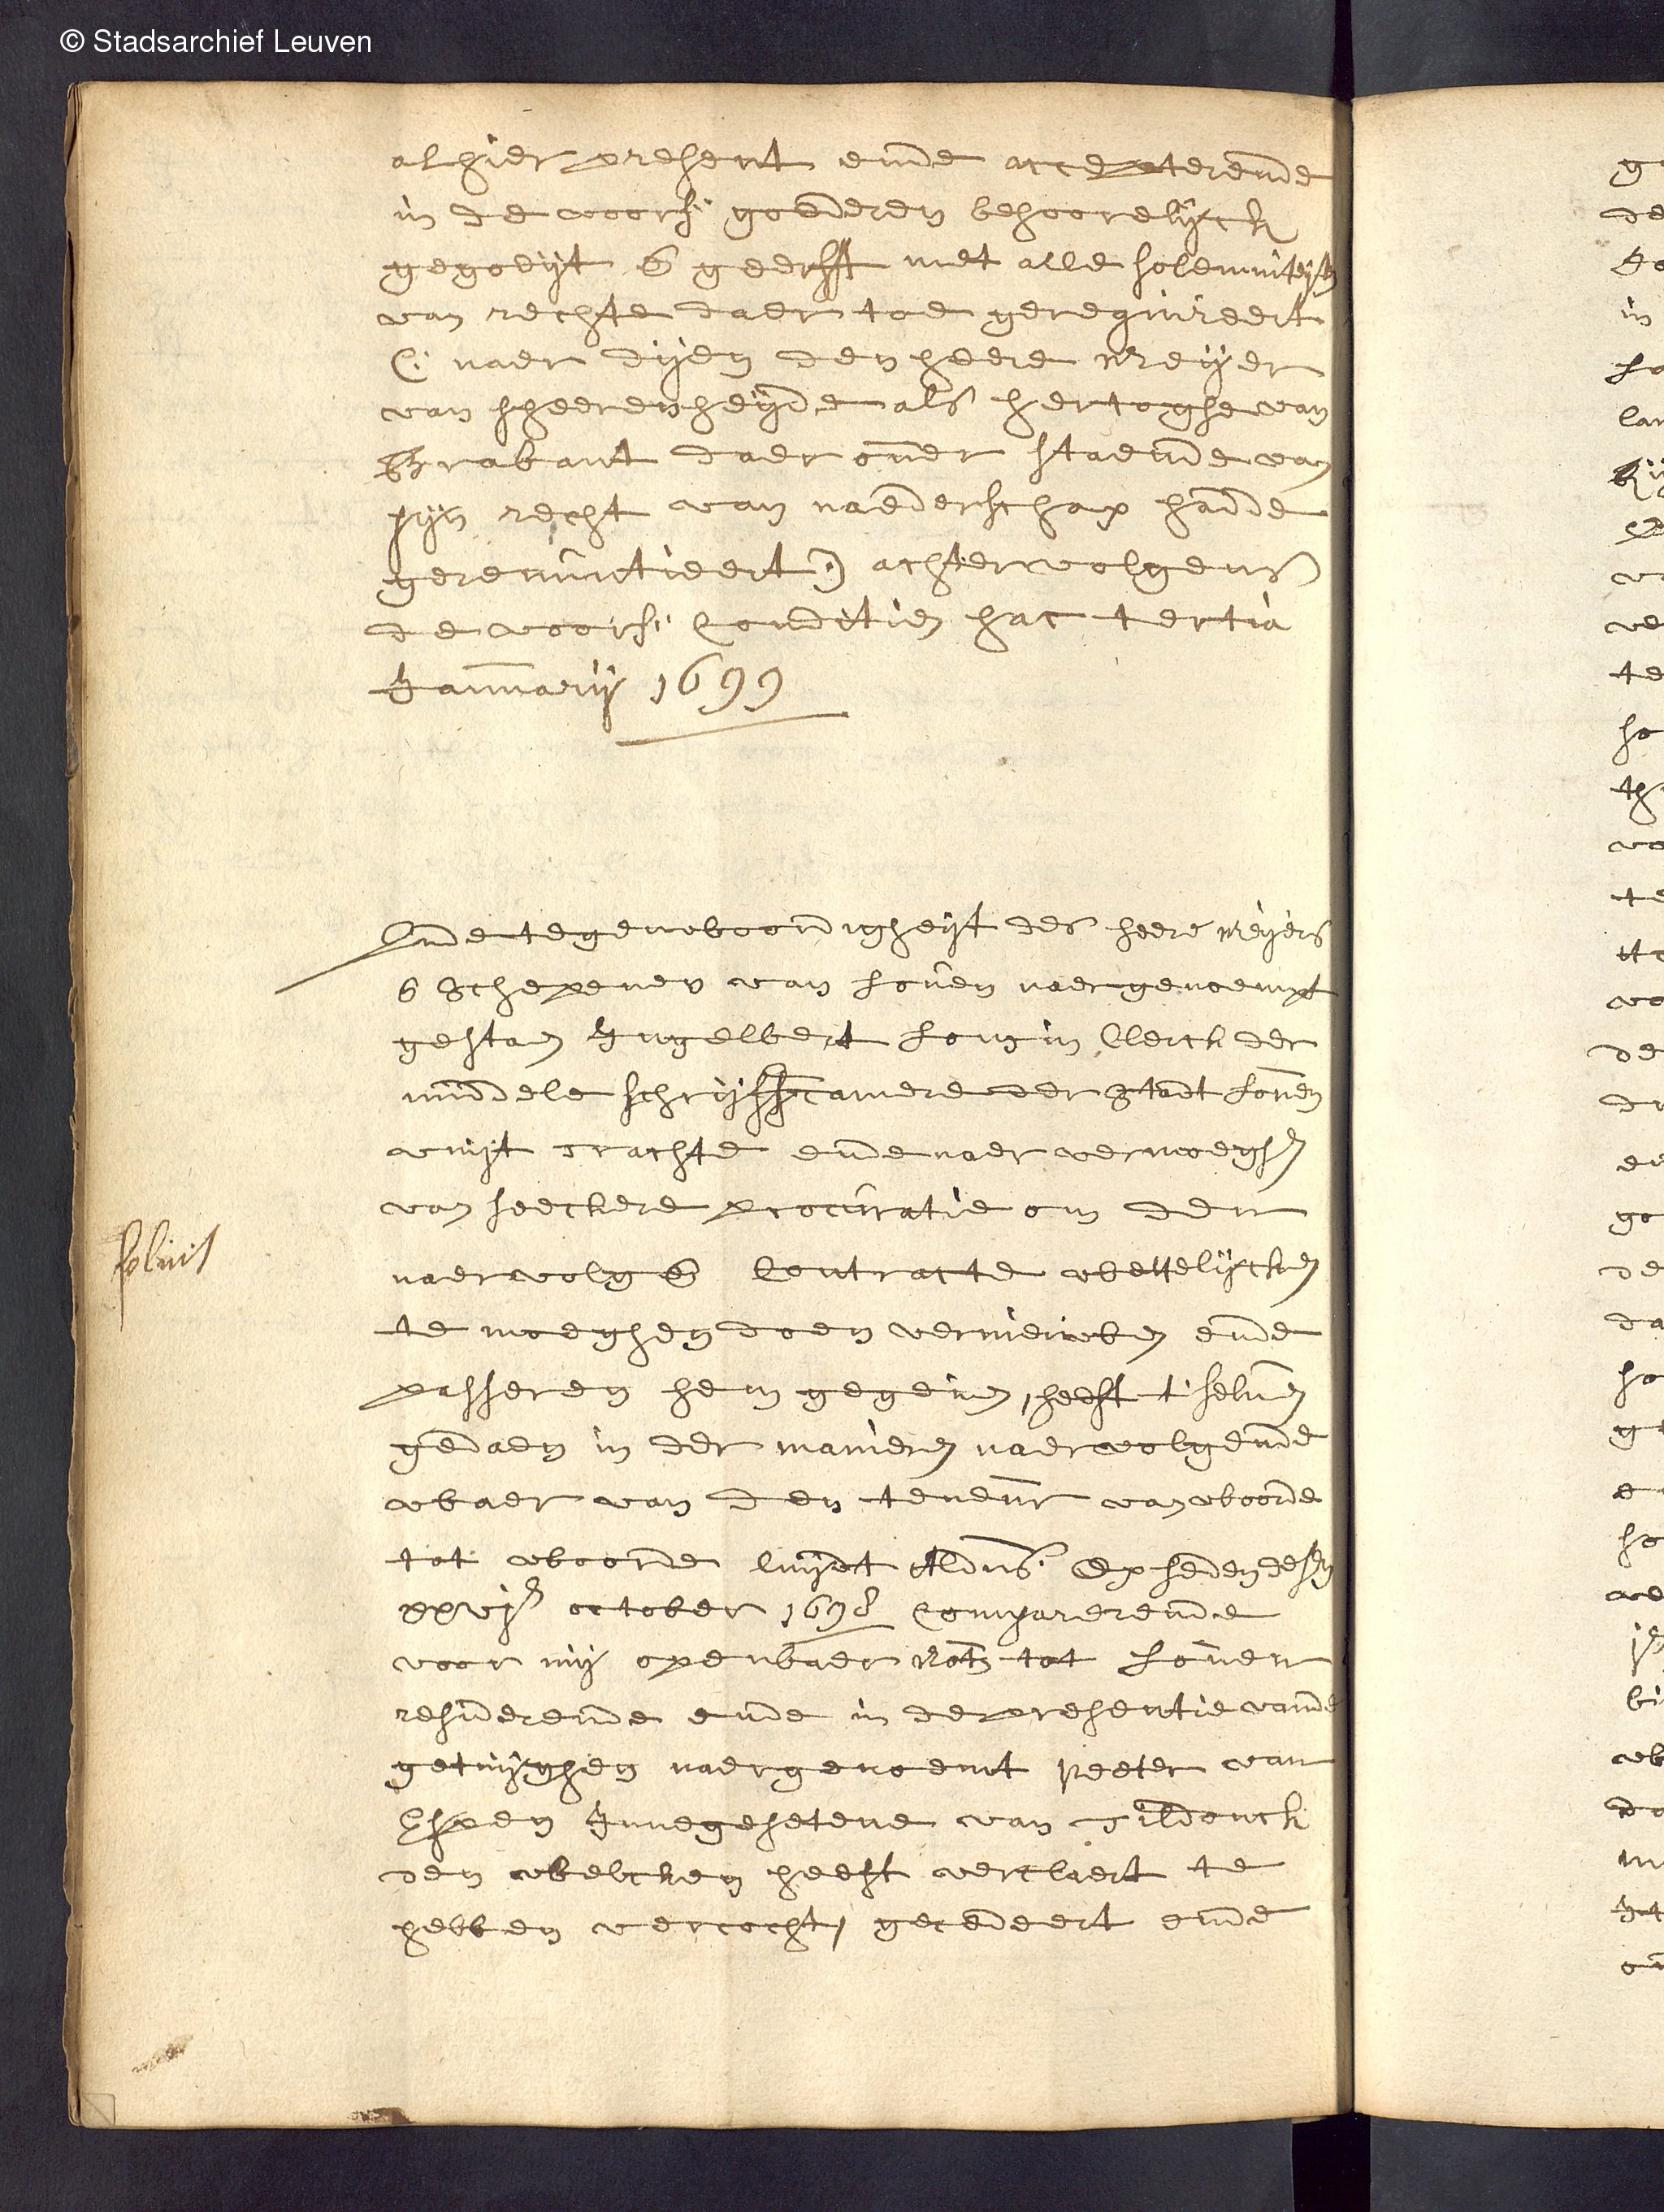 © Stadsarchief Leuven
alhier present ende accepterende
in de voors: goederen behoorelijck
gegoeyt & geerft met alle solemniteyten
van rechte daer toe gerequireert
(: naer dijen den heere Meyer
van sheerenheyde als hertoghe van
Brabant daer over staende van
sijn recht van naederschap hadde
gerenuntieert :) achtervolgens
de voors: Conditien hac tertia
January 1699
Inde tegenwoordigheyt des heere Meyers
& Schepenen van Loven naergenoempt
gestaen Ingelbert Clerck der
middele schrijffcamere der Stadt Loven
vuyt crachte ende naer vermoeghen
van seeckere procuratie om den
naervolg& Contracte wettelijcken
te moeghen doen vernieuwen ende
passeren hem gegeven, heeft t'selven
gedaen in der manieren naervolgende
waer van den teneur van woorde
tot woorde luydt Aldus. Op heden desen
xxvij october 1698 Comparerende
voor mij openbaer Nots tot Loven
residerende ende in de presentie vande
getuyghen naergenoemt Peeter van
Espen Innegesetene van Tildonck
den welcken heeft verclaert te
hebben vercocht, gecedeert ende
solvit